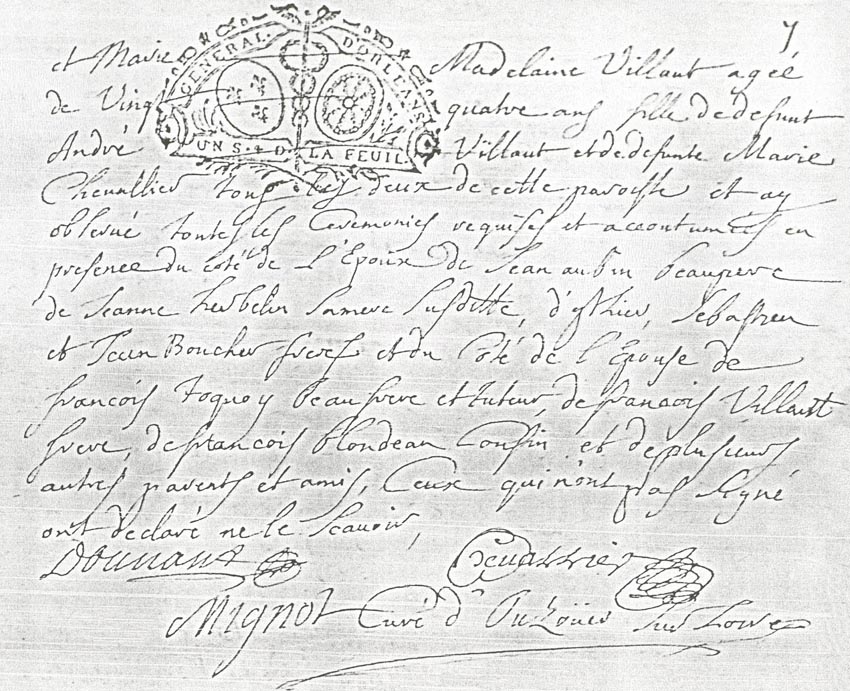 y
GENERAL. D'ORLEANS
UN S. 4 D. LA FEUIL
et Marie Madelaine Villaut ageé
de Vingt quatre ans fille de defunt
André Villaut et de defunte Marie
Cheuallier tous les deux de cette paroisse et ay
obserué toutes les Ceremonies requises et accoutumées en
presence du coté de L'Epoux de Jean aubin beaupere
de Jeanne herbelin Samere Susditte, Sebastien
et Jean Boucher freres et du Coté de l'Epouse de
francois toquoy beaufrere et tuteur, de francois Villaut
frere, de francois blondeau Cousin et de plusieurs
autres parents et amis, Ceux qui n'ont pas Signé
ont declaré ne le Scauoir,
Cheuallier
Mignot Curé d' Ouzoüer Sur Loire